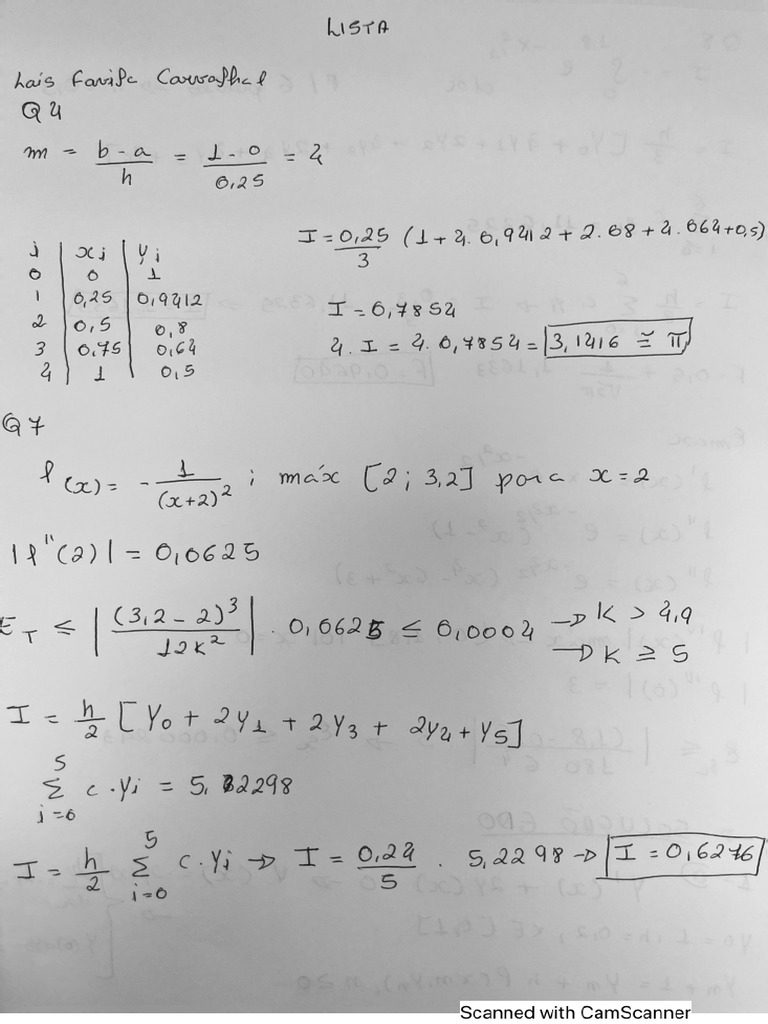 LISTA
Q4
m = b-a / h = 1-0 / 0,25 = 4
j | xj | yj
0 | 0 | 1
1 | 0,25 | 0,9412
2 | 0,5 | 0,8
3 | 0,75 | 0,64
4 | 1 | 0,5
I = 0,25 / 3 (1 + 4.0,9412 + 2.08 + 4.064 + 0,5)
I = 0,7854
4. I = 4. 0,7854 = 3,1416 ≅ π
Q7
f(x) = - 1 / (x+2)² ; máx [2 ; 3,2] para x = 2
|f''(2)| = 0,0625
ET ≤ | (3,2 - 2)³ / 12K² | . 0,0625 ≤ 0,0004 → K > 4,9
→ K ≥ 5
I = h/2 [Y0 + 2Y1 + 2Y3 + 2Y4 + Y5]
5
Σ c.Yi = 5,2298
i=0
I = h/2 5 Σ i=0 c.Yi → I = 0,24 / 5 . 5,2298 → I = 0,6276
Scanned with CamScanner